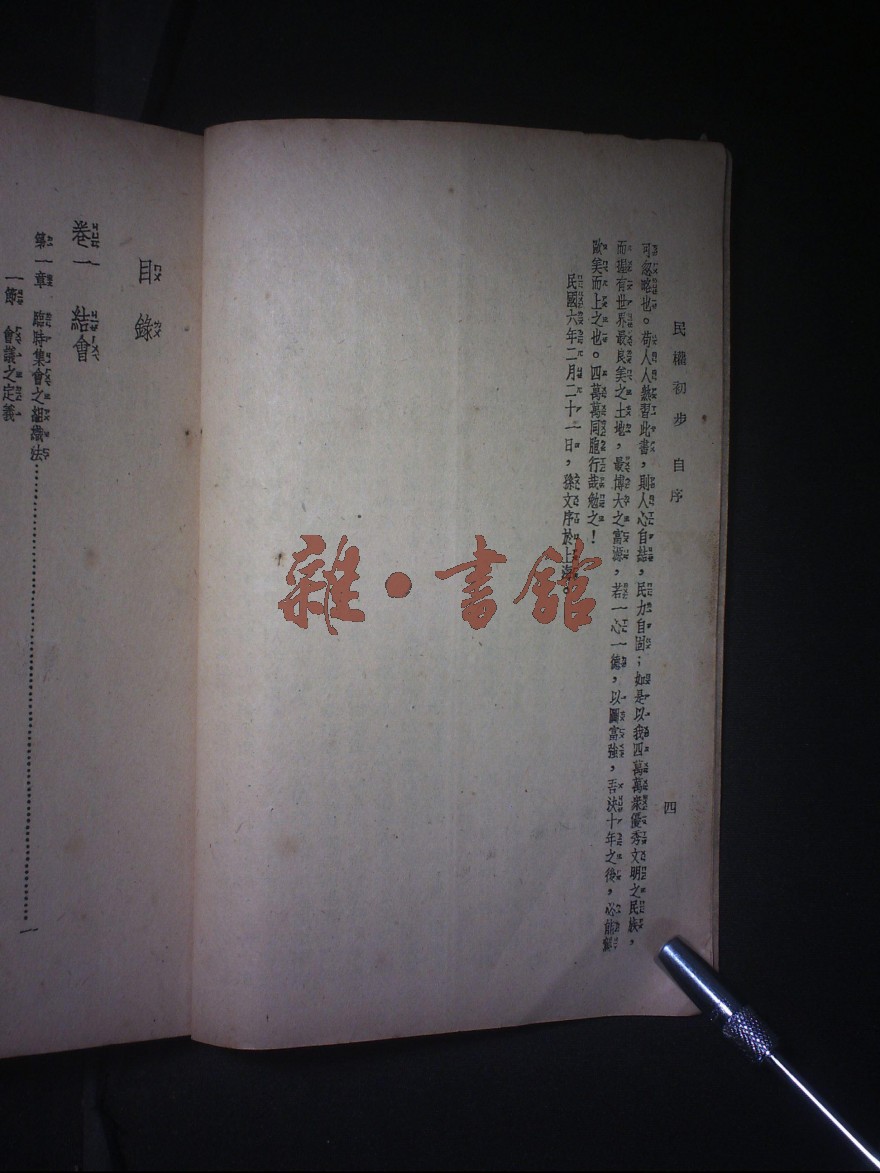 民權初步 自序
四
可忽略也。苟人人熟習此書，則人心自結，民力自固；如是以我四萬萬衆優秀文明之民族，
而握有世界最良美之土地，最博大之富源，若一心一德，以圖富強，吾決十年之後，必能駕
歐美而上之也。四萬萬同胞行哉勉之！
民國六年二月二十一日，孫文序於上海。
雜·書館
目錄
卷一 結會
第一章 臨時集會之組織法……………………一
一節 會議之定義